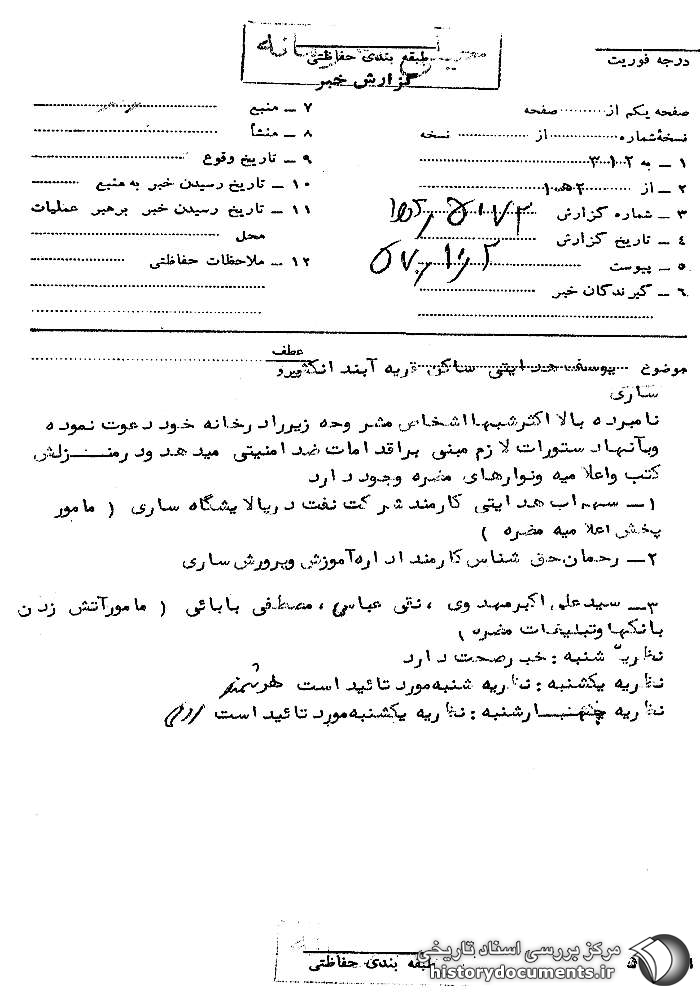 خیلی محرمانه
طبقه بندی حفاظتی
گزارش خبر
درجه فوریت
صفحه یکم از صفحه
نسخهٔ شماره از نسخه
۱ ـ به ۳۱۲
۲ ـ از ۱۰ه۲
۳ ـ شماره گزارش
۴ ـ تاریخ گزارش ۵۷/۱۰/۲
۵ ـ پیوست
۶ ـ گیرندگان خبر
۷ ـ منبع
۸ ـ منشأ
۹ ـ تاریخ وقوع
۱۰ ـ تاریخ رسیدن خبر به منبع
۱۱ ـ تاریخ رسیدن خبر برهبر عملیات
محل
۱۲ ـ ملاحظات حفاظتی
عطف
موضوع یوسف هدایتی ساکن قریه آبند انکشیرو
ساری
نامبرده بالا اکثر شبها اشخاص مشروحه زیررا در خانه خود دعوت نموده
وبآنها دستورات لازم مبنی براقدامات ضد امنیتی میدهد و در منزلش
کتب واعلامیه ونوارهای مضره وجود دارد
۱ـ سهراب هدایتی کارمند شرکت نفت در پالایشگاه ساری ( مامور
پخش اعلامیه مضره )
۲ـ رحمان حق شناس کارمند اداره آموزش وپرورش ساری
۳ـ سید علی اکبر مهدوی ، نقی عباسی ، مصطفی بابائی ( مامور آتش زدن
بانکها وتبلیغات مضره )
نظریه شنبه : خبر صحت دارد
نظریه یکشنبه : نظریه شنبه مورد تائید است هوشمند
نظریه چهارشنبه : نظریه یکشنبه مورد تائید است
طبقه بندی حفاظتی
مرکز بررسی اسناد تاریخی
historydocuments.ir